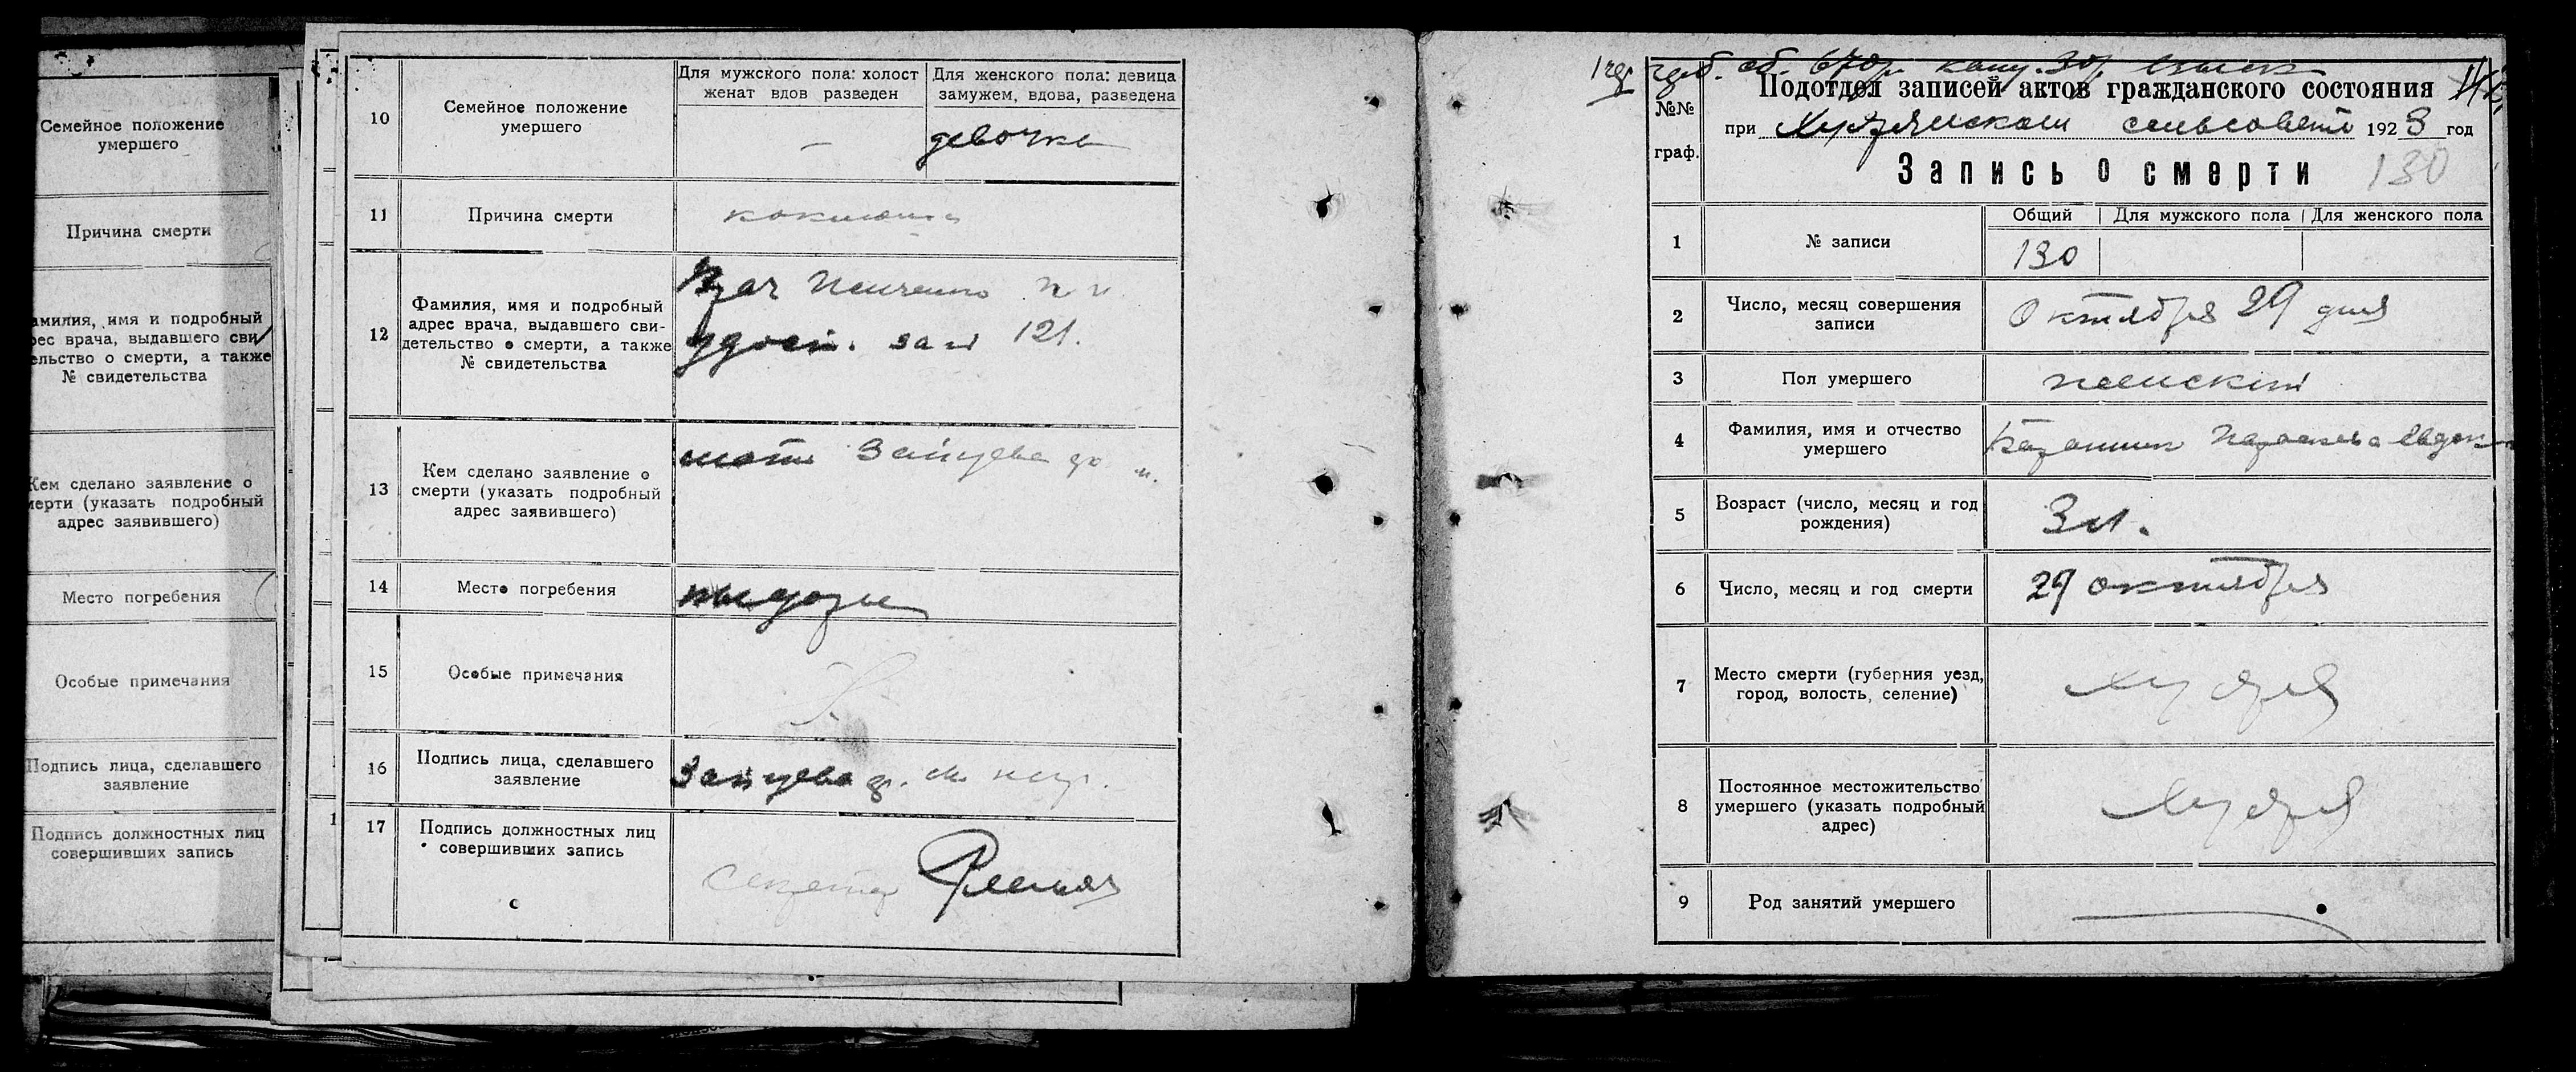 Семейное положение
умершего
Причина смерти
амилия, имя и подробный
рес врача, выдавшего сви
ельство о смерти, а также
№ свидетельства
Кем сделано заявление о
мерти (указать подробный
адрес заявившего)
Место погребения
Особые примечания
Подпись лица, сделавшего
заявление
Подпись должностных лиц
совершивших запись
10
Семейное положение
умершего
Для мужского пола: холост
женат вдов разведен
Для женского пола: девица
замужем, вдова, разведена
—
девочка
11
Причина смерти
12
Фамилия, имя и подробный
адрес врача, выдавшего сви-
детельство о смерти, а также
№ свидетельства
Врач
удост. за № 121.
13
Кем сделано заявление о
смерти (указать подробный
адрес заявившего)
мать Зайцева
14
Место погребения
15
Особые примечания
16
Подпись лица, сделавшего
заявление
Зайцева
17
Подпись должностных лиц
совершивших запись
секретарь
№№
граф.
Подотдел записей актов гражданского состояния
при сельсовете 1923 год
Запись о смерти
130
1
№ записи
Общий
Для мужского пола
Для женского пола
130
2
Число, месяц совершения
записи
Октября 29 дня
3
Пол умершего
женский
4
Фамилия, имя и отчество
умершего
5
Возраст (число, месяц и год
рождения)
3 л.
6
Число, месяц и год смерти
29 октября
7
Место смерти (губерния уезд,
город, волость, селение)
8
Постоянное местожительство
умершего (указать подробный
адрес)
9
Род занятий умершего